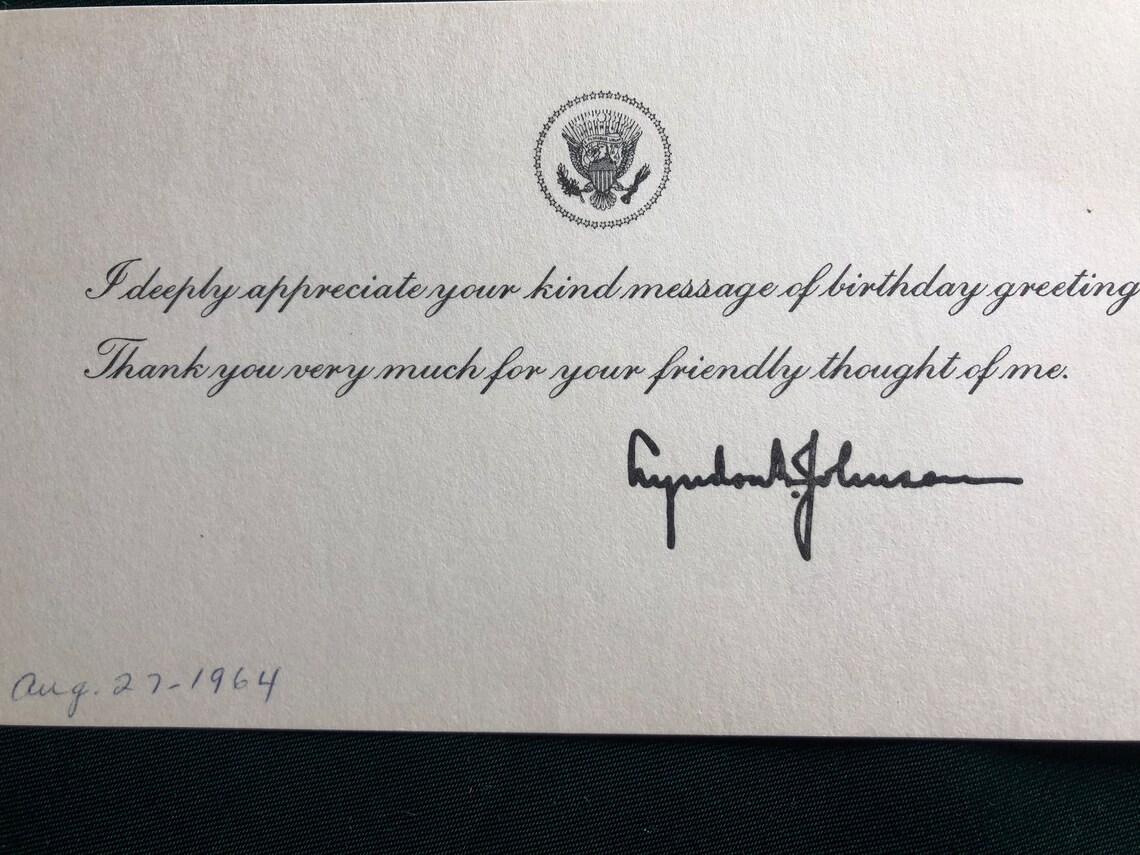 I deeply appreciate your kind message of birthday greeting
Thank you very much for your friendly thought of me.
Lyndon B. Johnson
Aug. 27-1964